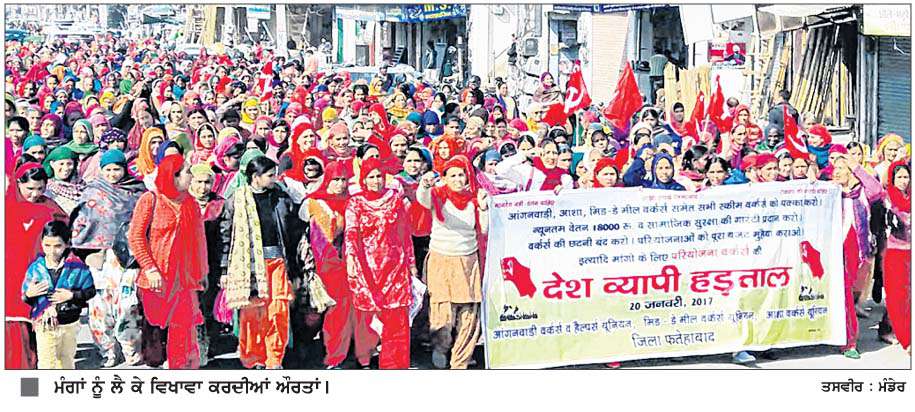 आंगनवाड़ी, आशा, मिड-डे मील वर्कर्स समेत सभी स्कीम वर्कर्स को पक्का करो।
न्यूनतम वेतन 18000 रू. व सामाजिक सुरक्षा की गारंटी प्रदान करो।
वर्कर्स की छटनी बंद करो। परियोजनाओं को पूरा बजट मुहैया कराओ।
इत्यादि मांगो के लिए परियोजना वर्कर्स की
देश व्यापी हड़ताल
20 जनवरी, 2017
आंगनवाड़ी वर्कर्स व हैल्पर्स यूनियन, मिड-डे मील वर्कर्स यूनियन, आशा वर्कर्स यूनियन
जिला फतेहाबाद
ਮੰਗਾਂ ਨੂੰ ਲੈ ਕੇ ਵਿਖਾਵਾ ਕਰਦੀਆਂ ਔਰਤਾਂ।
ਤਸਵੀਰ : ਮੰਡੇਰ